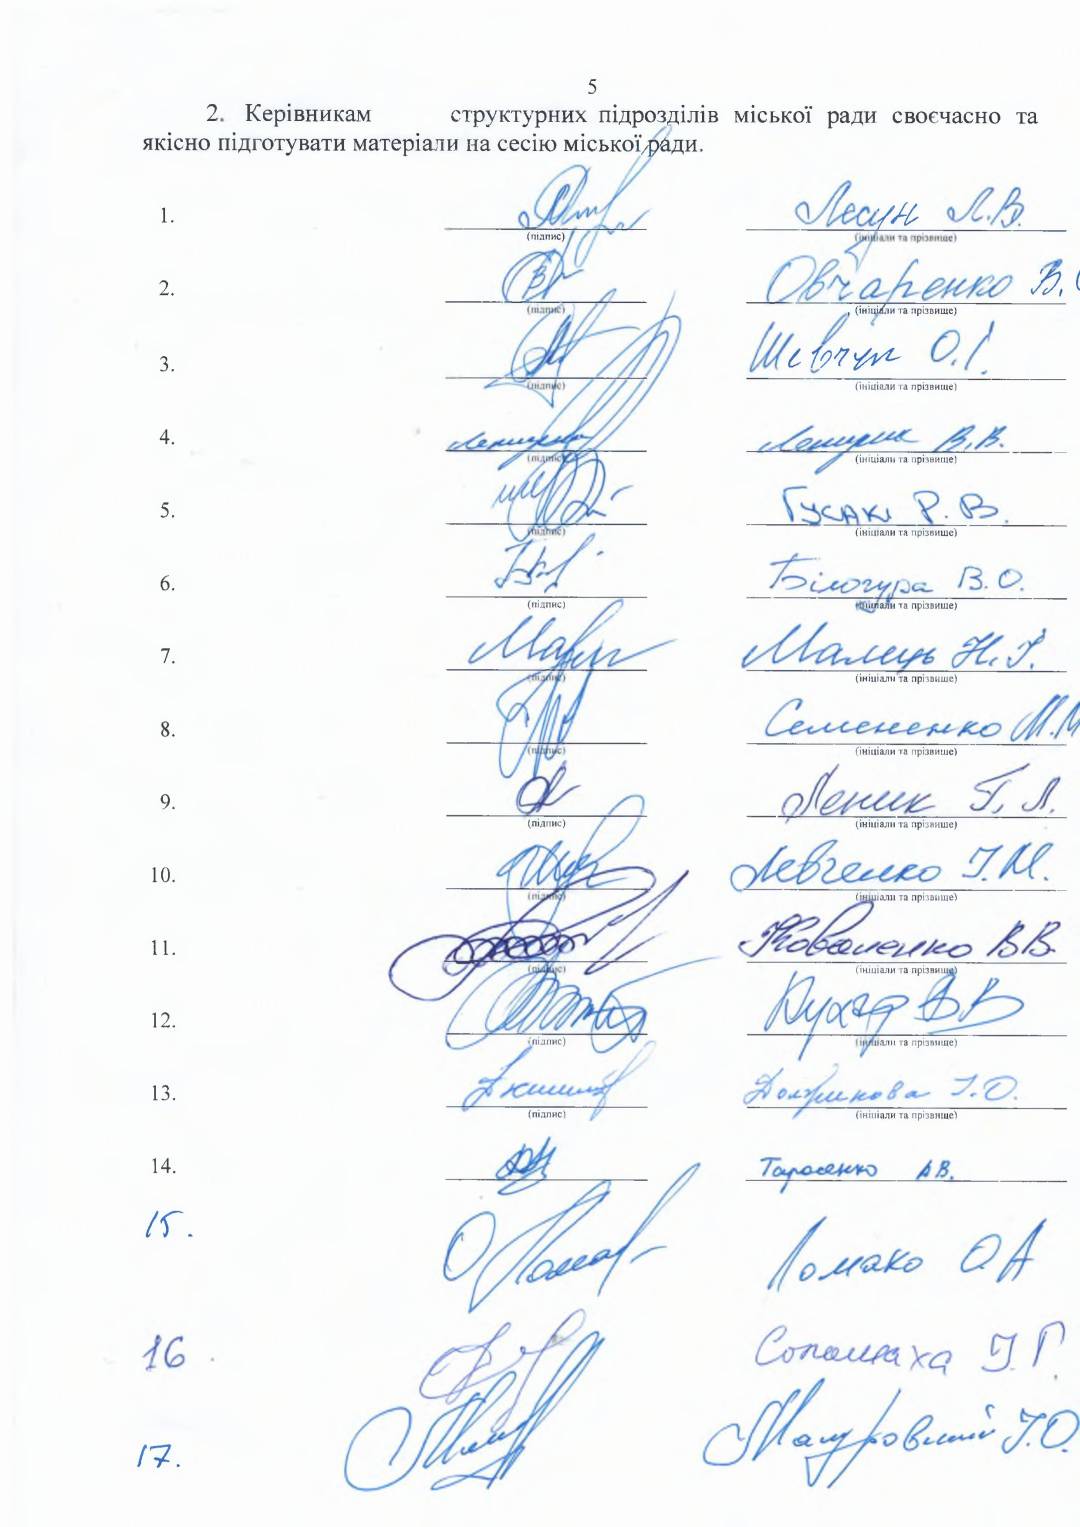 5
2. Керівникам структурних підрозділів міської ради своєчасно та
якісно підготувати матеріали на сесію міської ради.
1. Лесун Л.В.
(підпис) (ініціали та прізвище)
2. Овчаренко В.
(підпис) (ініціали та прізвище)
3. Шевчук О.І.
(підпис) (ініціали та прізвище)
4. В.В.
(підпис) (ініціали та прізвище)
5. Гусак Р.В.
(підпис) (ініціали та прізвище)
6. Білогура В.О.
(підпис) (ініціали та прізвище)
7. Малець Н.І.
(підпис) (ініціали та прізвище)
8. Семененко М.М
(підпис) (ініціали та прізвище)
9. Леник Г.Л.
(підпис) (ініціали та прізвище)
10. Левченко І.М.
(підпис) (ініціали та прізвище)
11. Коваленко В.В.
(підпис) (ініціали та прізвище)
12. Кухар В В
(підпис) (ініціали та прізвище)
13. І.О.
(підпис) (ініціали та прізвище)
14. Тарасенко А.В.
15. Ломако О А
16 І.Г
17. І.О.